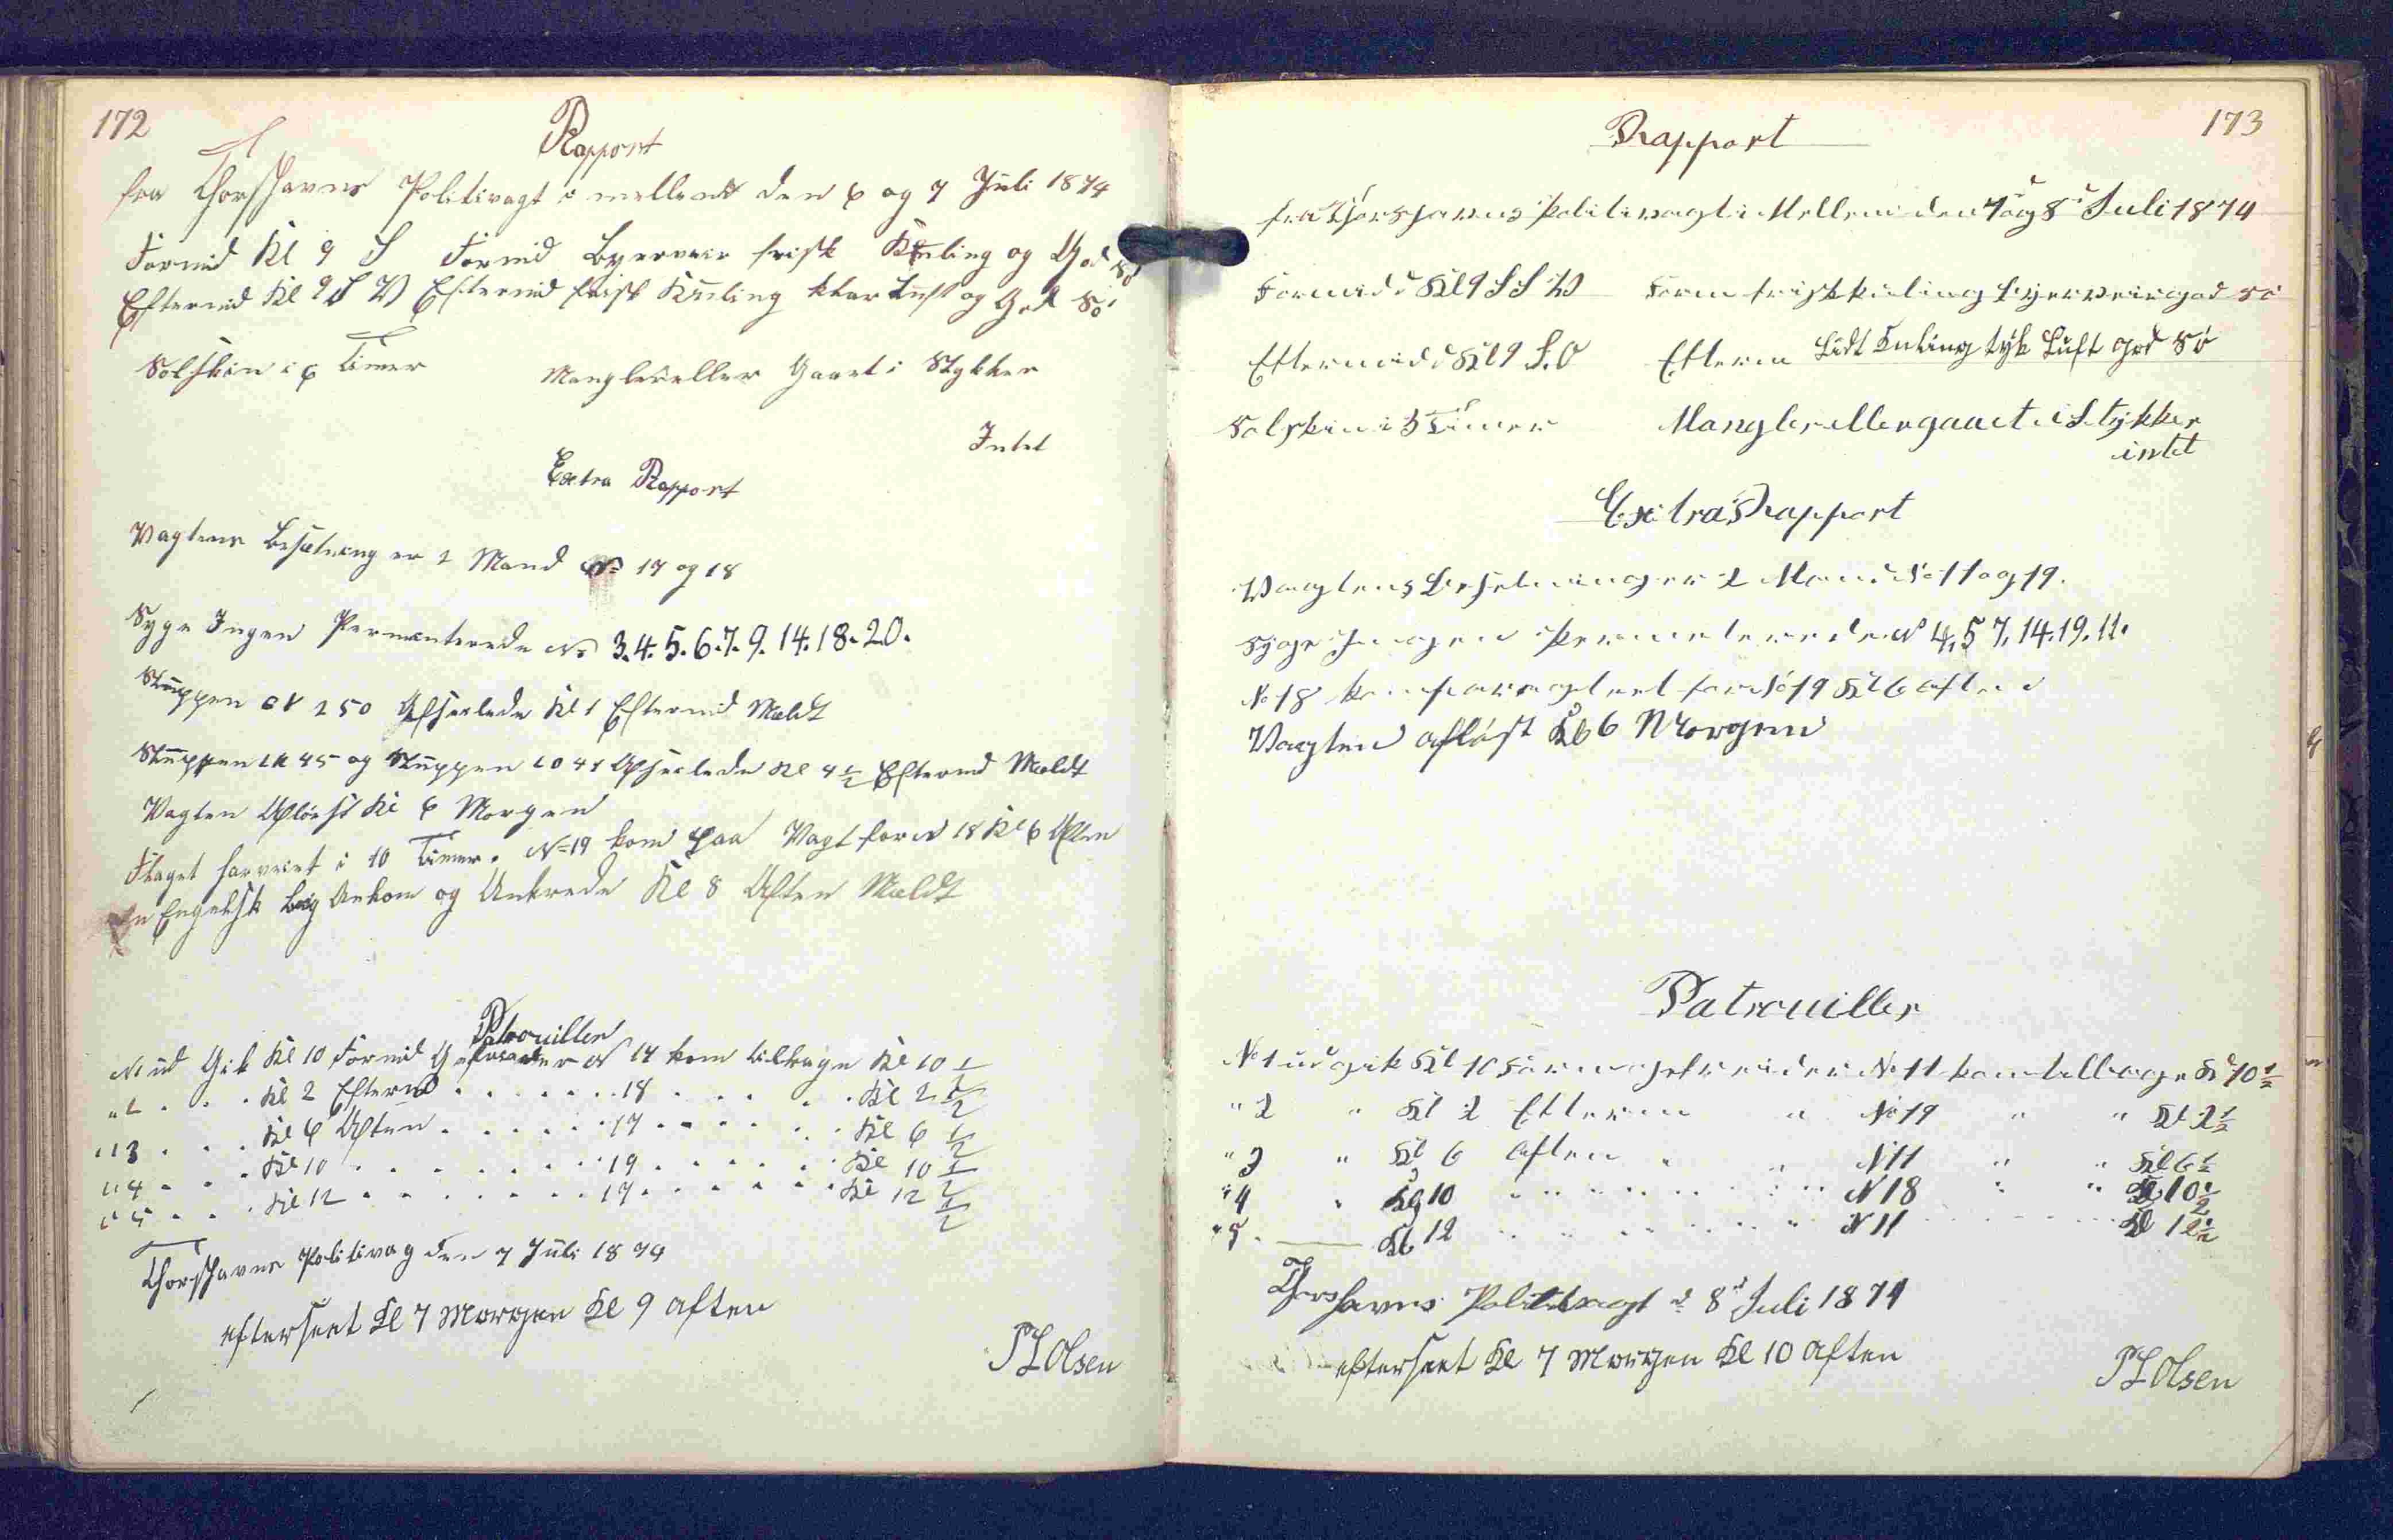 172
Rapport
fra Thorshavns Politivagt i mellem den 6 og 7 Juli 1874
Formid Kl 9 S Formid Byerveir frisk Kuling og God Sø
Eftermid Kl 9 S V Eftermid frisk Kuling klar Luft og God Sø
Solskin i 6 Timer Mangler eller Gaaet i Stykker
Intet
Extra Rapport
Vagtens Besætning er 2 Mand No 17 og 18
Syge Ingen Permenterede No 3.4.5.6.7.9.14.18.20.
Sluppen 250 Afseilede Kl 1 Eftermid Meldt
Sluppen LK 45 og Sluppen LO 41 Afseilede Kl 4 1/2 Eftermid Meldt
Vagten Afløst Kl 6 Morgen
Flaget har veiet i 10 Timer. No 19 kom paa Vagt for N 18 Kl 6 Aften
En Engelsk Brig Ankom og Ankrede Kl 8 Aften Meldt
Patrouiller
N 1 ud Gik Kl 10 Formid Gefreider N 17 kom tilbage Kl 10 1/2
" 2 . . . Kl 2 Eftermd . . . . . . . 18 . . . . . Kl 2 1/2
" 3 . . . Kl 6 Aften . . . . . . 17 . . . . . . Kl 6 1/2
" 4 . . . Kl 10 . . . . . . . . 19 . . . . . . Kl 10 1/2
" 5 . . . Kl 12 . . . . . . . . 17 . . . . . . Kl 12 1/2
Thorshavns Politivag den 7 Juli 1874
efterseet Kl 7 Morgen Kl 9 aften
PLOlsen
173
Rapport
fra Thorshavns Politivagt i Mellem den 7 og 8d Juli 1874
Formidd Kl 9 S S W Form frisk kuling Byerveir god sø
Eftermidd Kl 9 S.O Efterm Lidt Kuling tyk Luft god Sø
Solskin i 3 Timer Mangler eller gaaet i Stykker
intet
Extra Rapport
Vagtens Besetning er 2 Man No 11 og 19.
Syge Ingen Permeterede N 4,5 7,14.19.11.
No 18 kom paa vagt for No 19 Kl 6 aften
Vagten afløst Kl 6 Morgen
Patrouiller
No 1 udgik Kl 10 Form gefreider No 11 kom tilbage Kl 10 1/2
" 2 " Kl 2 Efterm " No 19 " " Kl 2 1/2
" 3 " Kl 6 aften " " N 11 " " Kl 6 1/2
" 4 " Kl 10 " " " " N 18 " " Kl 10 1/2
" 5 . Kl 12 " " " " N 11 Kl 12 1/2
Thorshavns Politivagt d 8d Juli 1874
efterseet Kl 7 Morgen Kl 10 aften
PLOlsen